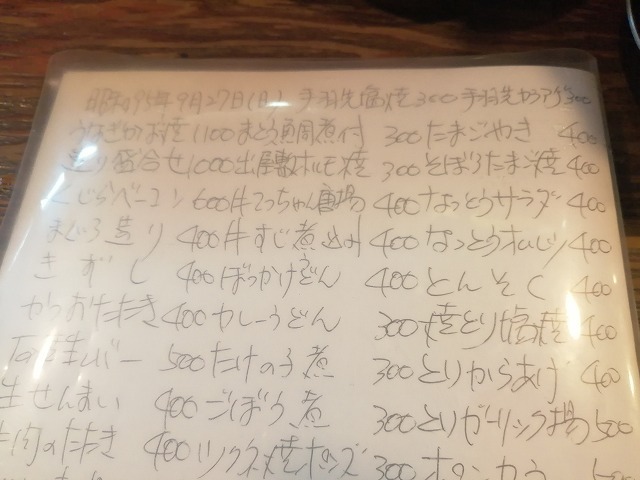 昭和95年9月27日(日) 手羽先塩焼300手羽先からアゲ300
うなぎのお焼1100まぐろ魚周煮付 300たまごやき 400
造り盛合せ1000出屋敷ホルモン焼 300そぼろたまご焼 400
くじらベーコン 600牛てっちゃん唐揚 400なっとうサラダ 400
まぐろ造り 400牛すじ煮込み 400なっとうオムレツ 400
きずし 400ぼっかけどん 400とんそく 400
かつおたたき 400カレーうどん 300焼とり塩焼 400
生レバー 500たけの子煮 300とりからあげ 400
生せんまい 400ごぼう煮 300とりガーリック揚 500
牛肉のたたき 400ツクネ焼ポンズ 300